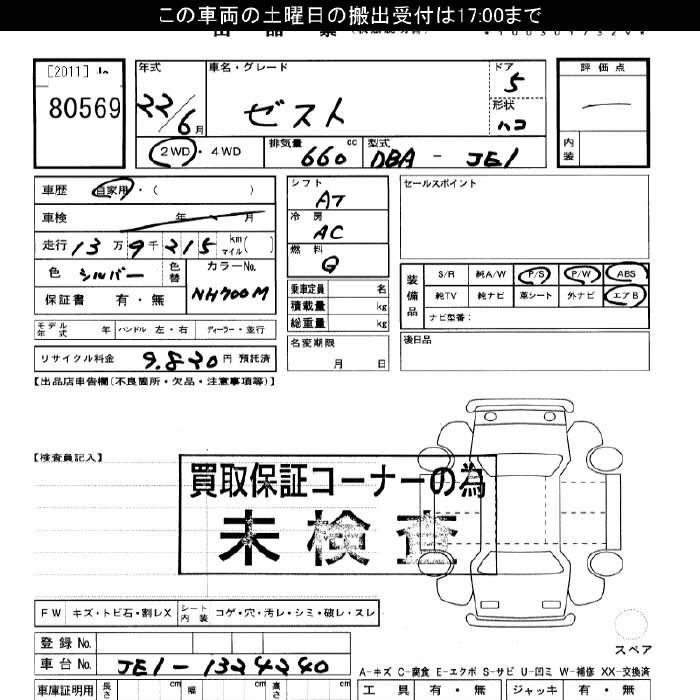 この車両の土曜日の搬出受付は17:00まで
[2011]
80569
年式
22/6月
車名・グレード
ゼスト
ドア
5
形状
ハコ
評価点
内装
2WD・4WD
排気量 660 cc
型式 DBA - JE1
車歴 自家用・( )
車検 年 月
走行 13万9千215 km マイル( )
色 シルバー
色替
カラーNo.
NH700M
保証書 有・無
シフト
AT
冷房
AC
燃料
G
乗車定員 名
積載量 kg
総重量 kg
名変期限
月 日
セールスポイント
装備品
S/R 純A/W P/S P/W ABS
純TV 純ナビ 革シート 外ナビ エアB
ナビ型番:
後日品
モデル年式 年 ハンドル 左・右 ディーラー・並行
リサイクル料金 9.820 円 預託済
【出品店申告欄(不良箇所・欠品・注意事項等)】
【検査員記入】
買取保証コーナーの為
未検査
FW キズ・トビ石・割レX シート内装 コゲ・穴・汚レ・シミ・破レ・スレ
スペア
登録No.
車台No. JE1-1324240
A-キズ C-腐食 E-エクボ S-サビ U-凹ミ W-補修 XX-交換済
車庫証明用 長さ cm 幅 cm 高さ cm
工具 有・無 ジャッキ 有・無